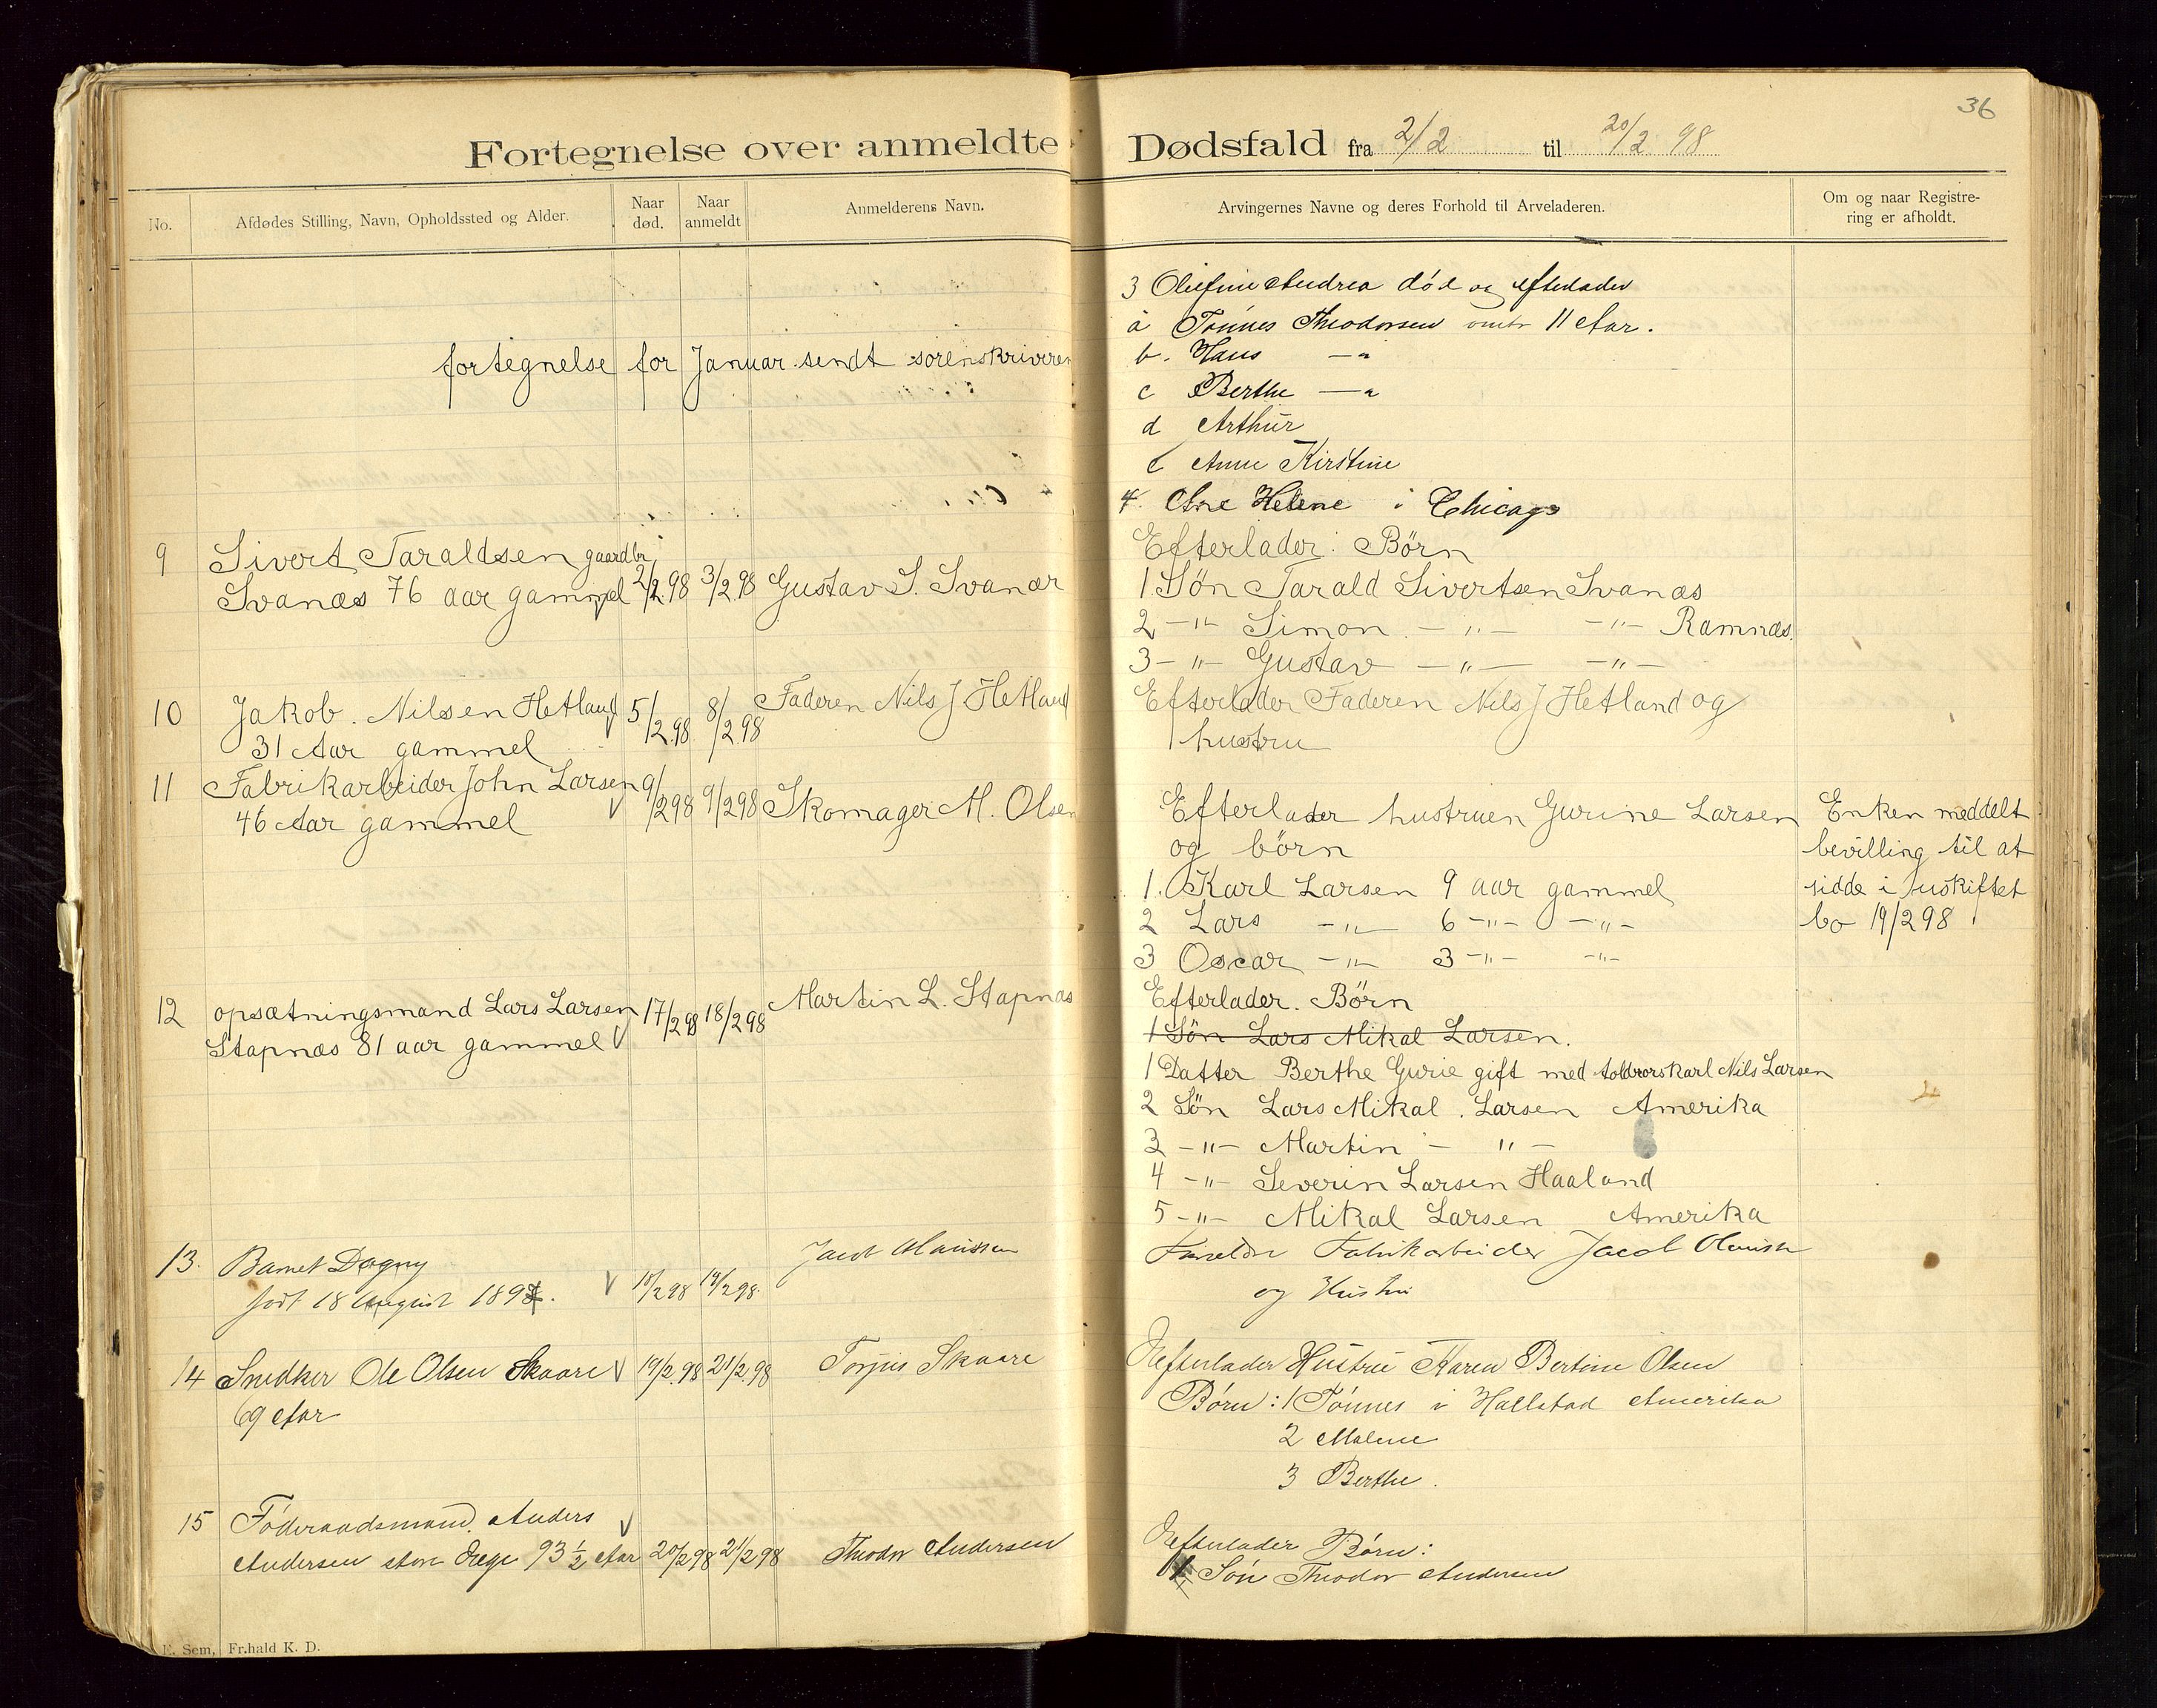 36
Fortegnelse over anmeldte Dødsfald fra 2/2 til 20/2 98
No.
Afdødes Stilling, Navn, Opholdssted og Alder.
Naar død.
Naar anmeldt
Anmelderens Navn.
Arvingernes Navne og deres Forhold til Arveladeren.
Om og naar Registre-
ring er afholdt.
3 Olefine Andrea död og efterlader
a Tönnes Theodorsen omtr 11 Aar.
fortegnelse for Januar sendt sorenskriveren
b. Hans —"
c Berthe —"
d Arthur
e Anne Kirstine
4. Ane Helene i Chicago
9 Sivert Taraldsen gaardbr,
Svanæs 76 aar gammel 2/2.98 3/2.98 Gustav S. Svanæs
Efterlader: Børn
1. Sön Tarald Sivertsen Svanæs
2 -"- Simon -"- -"- Ramnæs.
3 -"- Gustav -"- -"-
10 Jakob. Nilsen Hetland 5/2.98 8/2.98 Faderen Nils J Hetland
31 Aar gammel
Efterlader Faderen Nils J Hetland og
hustru
11 Fabrikarbeider John Larsen 9/298 9/298 Skomager M. Olsen
46 Aar gammel
Efterlader hustruen Gurine Larsen
og börn
1. Karl Larsen 9 aar gammel
2 Lars -"- 6 -"- -"-
3 Oscar -"- 3 -"- -"-
Enken meddelt
bevilling til at
sidde i uskiftet
bo 19/298
12 opsætningsmand Lars Larsen 17/298 18/298 Martin L. Stapnæs
Stapnæs 81 aar gammel
Efterlader. Börn
1 Sön Lars Mikal Larsen.
1 Datter Berthe Gurie gift med toldrorskarl Nils Larsen
2 Sön Lars Mikal. Larsen Amerika
3 -"- Martin - " -
4 -"- Severin Larsen Haaland
5 -"- Mikal Larsen Amerika
13. Barnet Dagny
født 18 August 189 18/298 19/298. Jacob Olaussen
Forældre Fabrikarbeider Jacob
og Hustru
14 Snedker Ole Olsen Skaare 19/2.98 21/2.98 Torjus Skaare
69 Aar
Efterlader Hustru Karen Bertine Olsen
Börn: 1 Tönnes i Hallstad Amerika
2 Malene
3 Berthe.
15 Föderaadsmand. Anders
Andersen store Eege 93 1/2 Aar 20/298 21/298 Theodor Andersen
Efterlader Börn:
1 Sön Theodor Andersen
E. Sem, Fr.hald K. D.